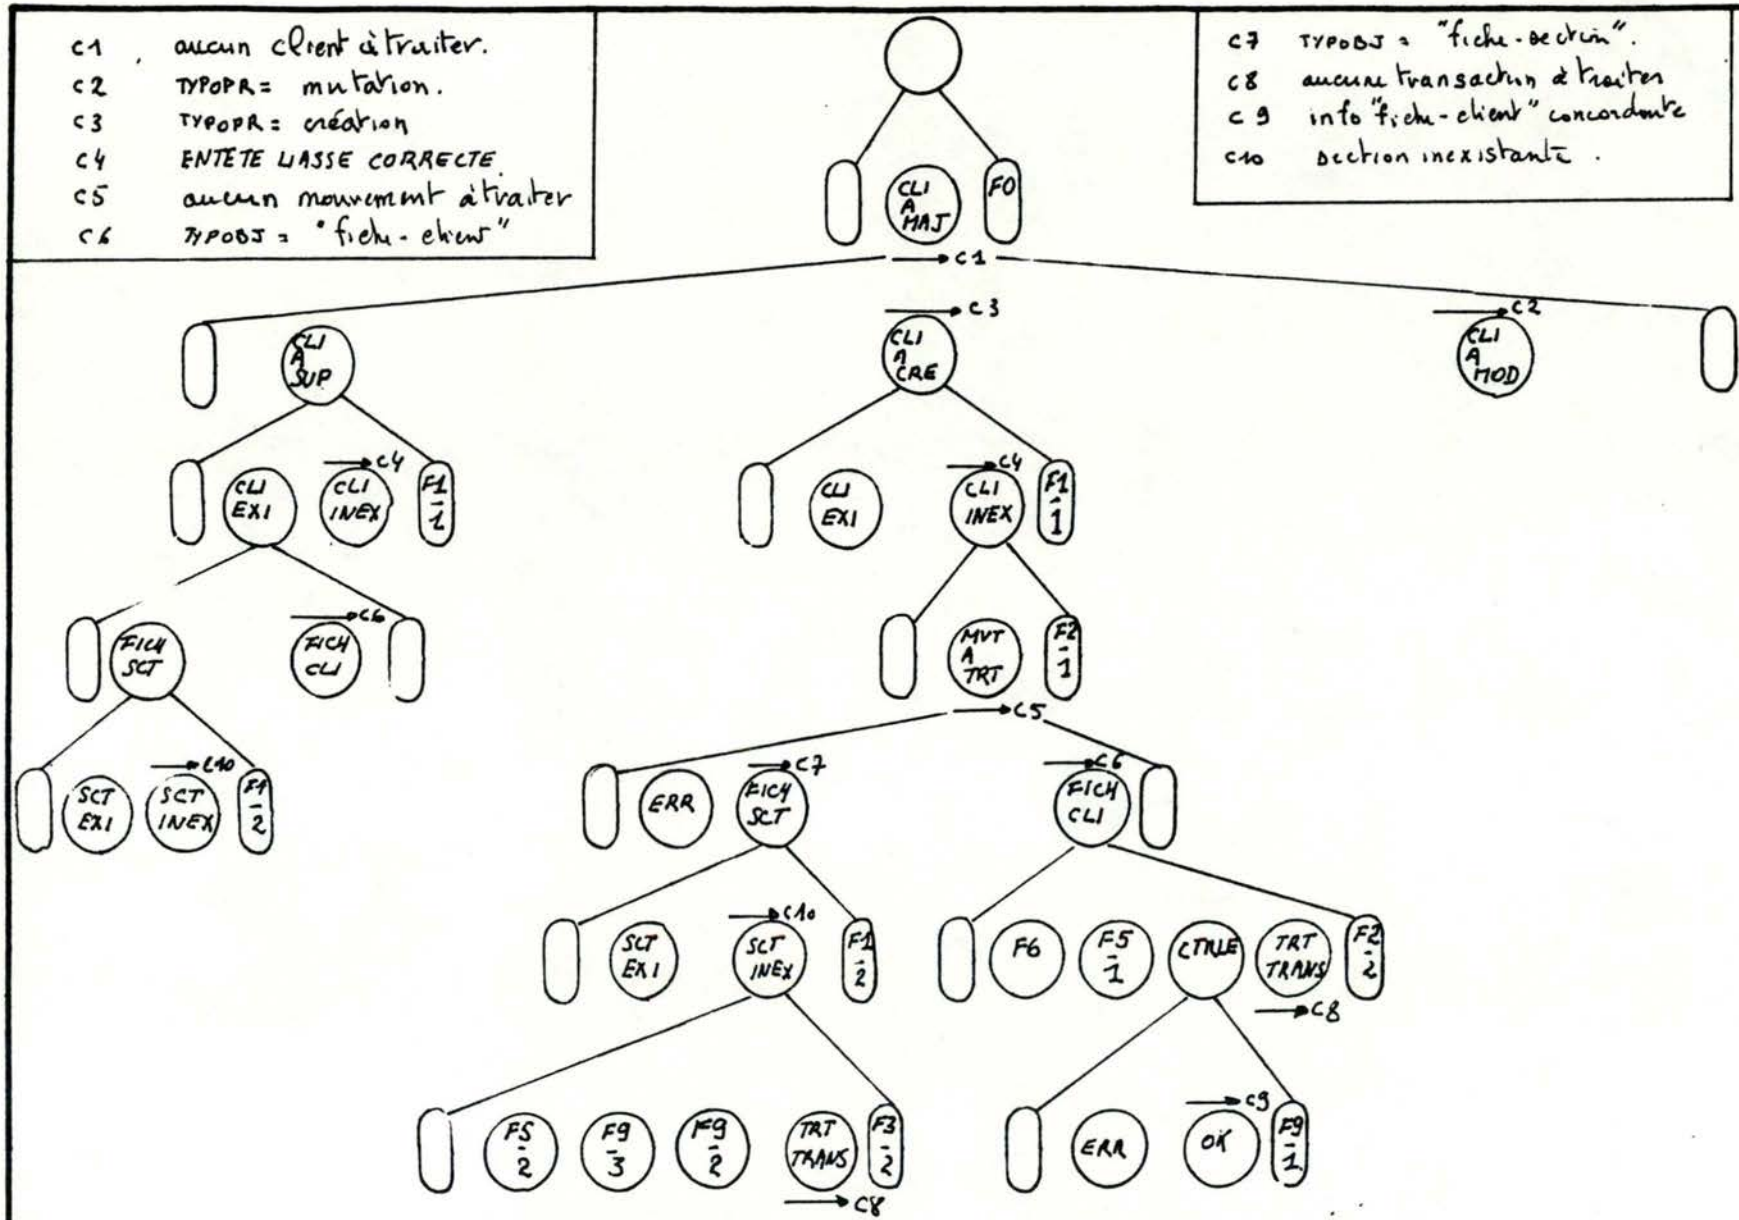 C1 aucun client à traiter.
C2 TYPOPR = mutation.
C3 TYPOPR = création
C4 ENTÊTE LIASSE CORRECTE.
C5 aucun mouvement à traiter
C6 TYPOBJ = "fiche-client"
C7 TYPOBJ = "fiche-section".
C8 aucune transaction à traiter
C9 info "fiche-client" concordante
C10 section inexistante.
CLI
A
MAJ
F0
C1
CLI
A
SUP
C3
CLI
A
CRE
C2
CLI
A
MOD
CLI
EXI
C4
CLI
INEX
F1
-
1
CLI
EXI
C4
CLI
INEX
F1
-
1
FICH
SCT
C6
FICH
CLI
MVT
A
TRT
F2
-
1
C5
SCT
EXI
C10
SCT
INEX
F1
-
2
ERR
C7
FICH
SCT
C6
FICH
CLI
SCT
EXI
C10
SCT
INEX
F1
-
2
F6
F5
-
1
CTRLE
TRT
TRANS
C8
F2
-
2
F5
-
2
F9
-
3
F9
-
2
TRT
TRANS
C8
F3
-
2
ERR
C9
OK
F9
-
1